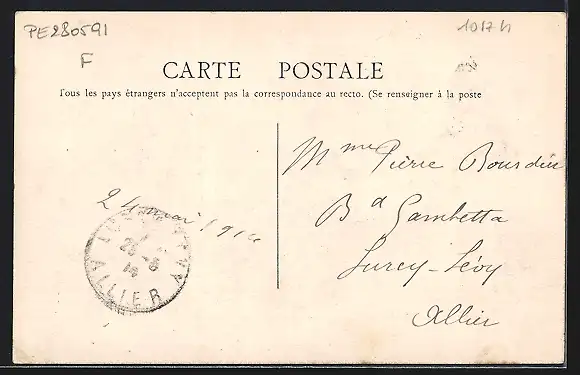 PE280591
F
1017 h
CARTE POSTALE
Tous les pays étrangers n'acceptent pas la correspondance au recto. (Se renseigner à la poste
24 mai 1914
Mme Pierre Bourdin
Bd Gambetta
Lurcy-Lévy
Allier
ALLIER